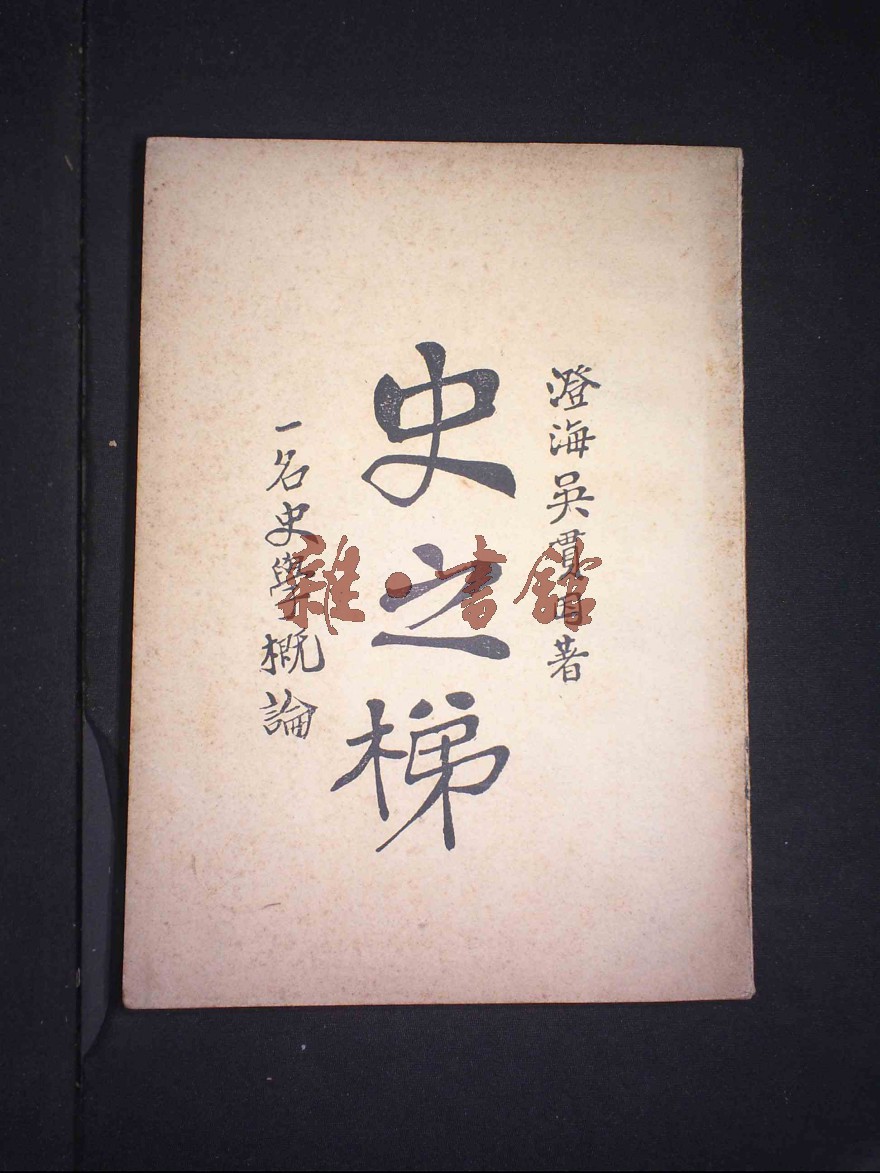 澄海吳貫因著
史之梯
一名史學概論
雜·書館